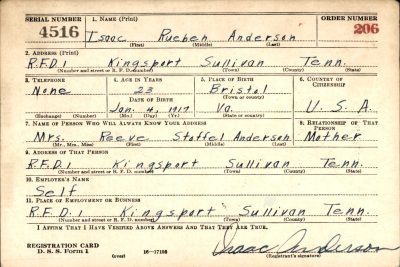 SERIAL NUMBER 1. NAME (Print) ORDER NUMBER
4516 Isaac Rueben Anderson 206
(First) (Middle) (Last)
2. ADDRESS (Print)
R.F.D.1 Kingsport Sullivan Tenn.
(Number and street or R. F. D. number) (Town) (County) (State)
3. TELEPHONE 4. AGE IN YEARS 5. PLACE OF BIRTH 6. COUNTRY OF CITIZENSHIP
None 23 Bristol
DATE OF BIRTH (Town or county)
Jan. 4, 1917 Va. U.S.A.
(Exchange) (Number) (Mo.) (Day) (Yr.) (State or country)
7. NAME OF PERSON WHO WILL ALWAYS KNOW YOUR ADDRESS 8. RELATIONSHIP OF THAT PERSON
Mrs. Reeve Stoffel Anderson Mother
(Mr., Mrs., Miss) (First) (Middle) (Last)
9. ADDRESS OF THAT PERSON
R.F.D.1 Kingsport Sullivan Tenn.
(Number and street or R. F. D. number) (Town) (County) (State)
10. EMPLOYER'S NAME
Self
11. PLACE OF EMPLOYMENT OR BUSINESS
R.F.D.1 Kingsport Sullivan Tenn.
(Number and street or R. F. D. number) (Town) (County) (State)
I AFFIRM THAT I HAVE VERIFIED ABOVE ANSWERS AND THAT THEY ARE TRUE.
REGISTRATION CARD
D. S. S. Form 1 (over) 16—17105 Isaac Anderson
(Registrant's signature)